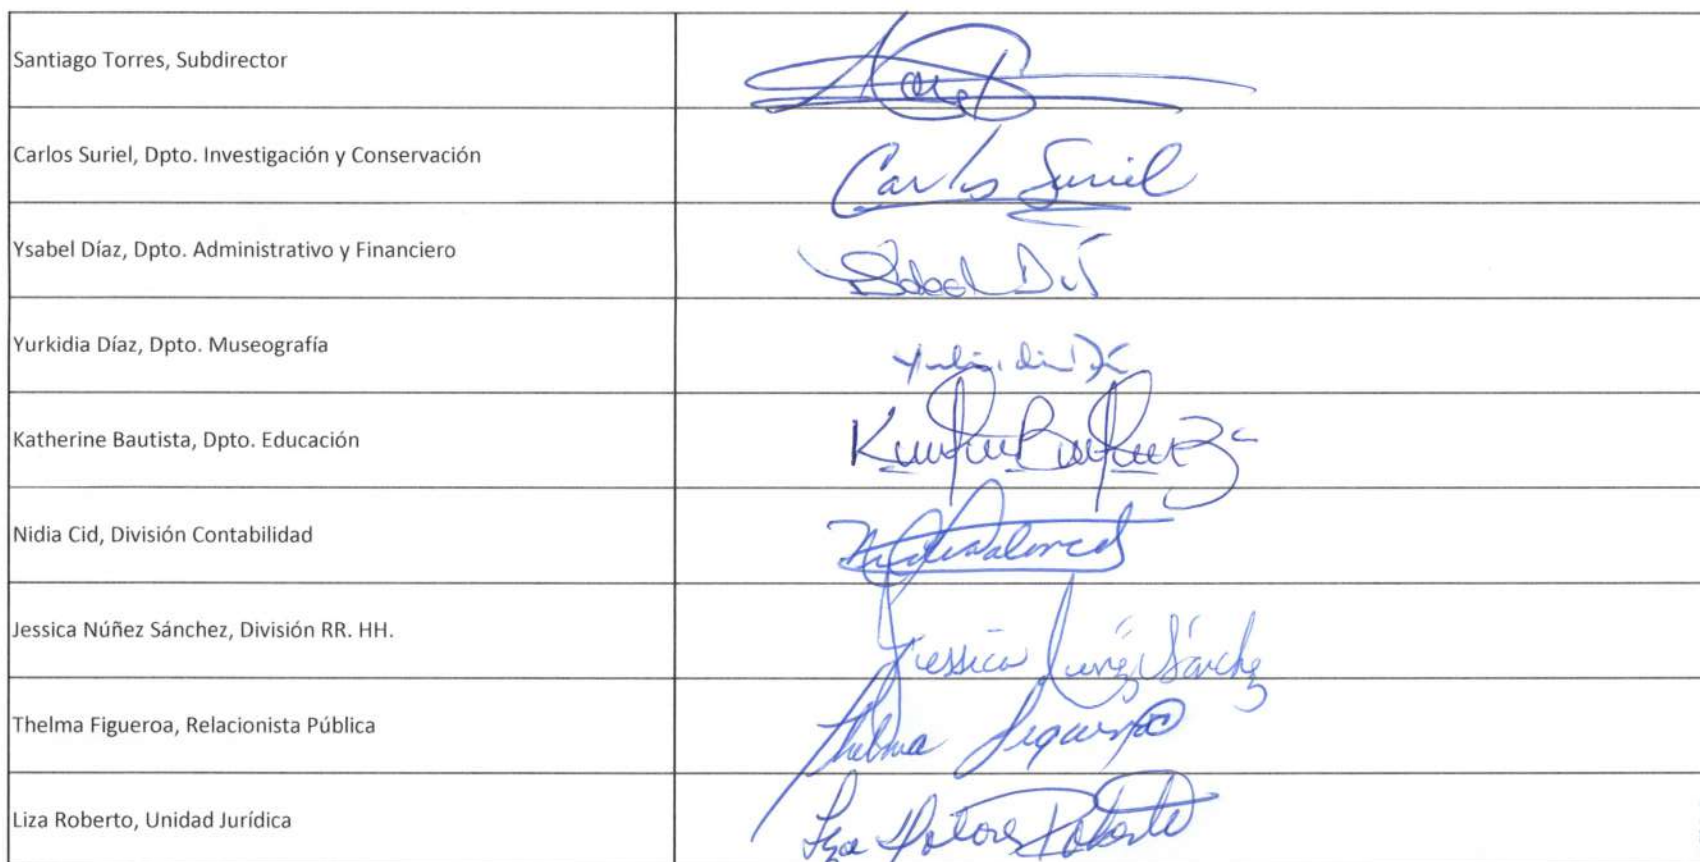 Santiago Torres, Subdirector
Carlos Suriel, Dpto. Investigación y Conservación
Carlos Suriel
Ysabel Díaz, Dpto. Administrativo y Financiero
Yurkidia Díaz, Dpto. Museografía
Katherine Bautista, Dpto. Educación
Nidia Cid, División Contabilidad
Jessica Núñez Sánchez, División RR. HH.
Jessica Núñez Sánchez
Thelma Figueroa, Relacionista Pública
Thelma Figueroa
Liza Roberto, Unidad Jurídica